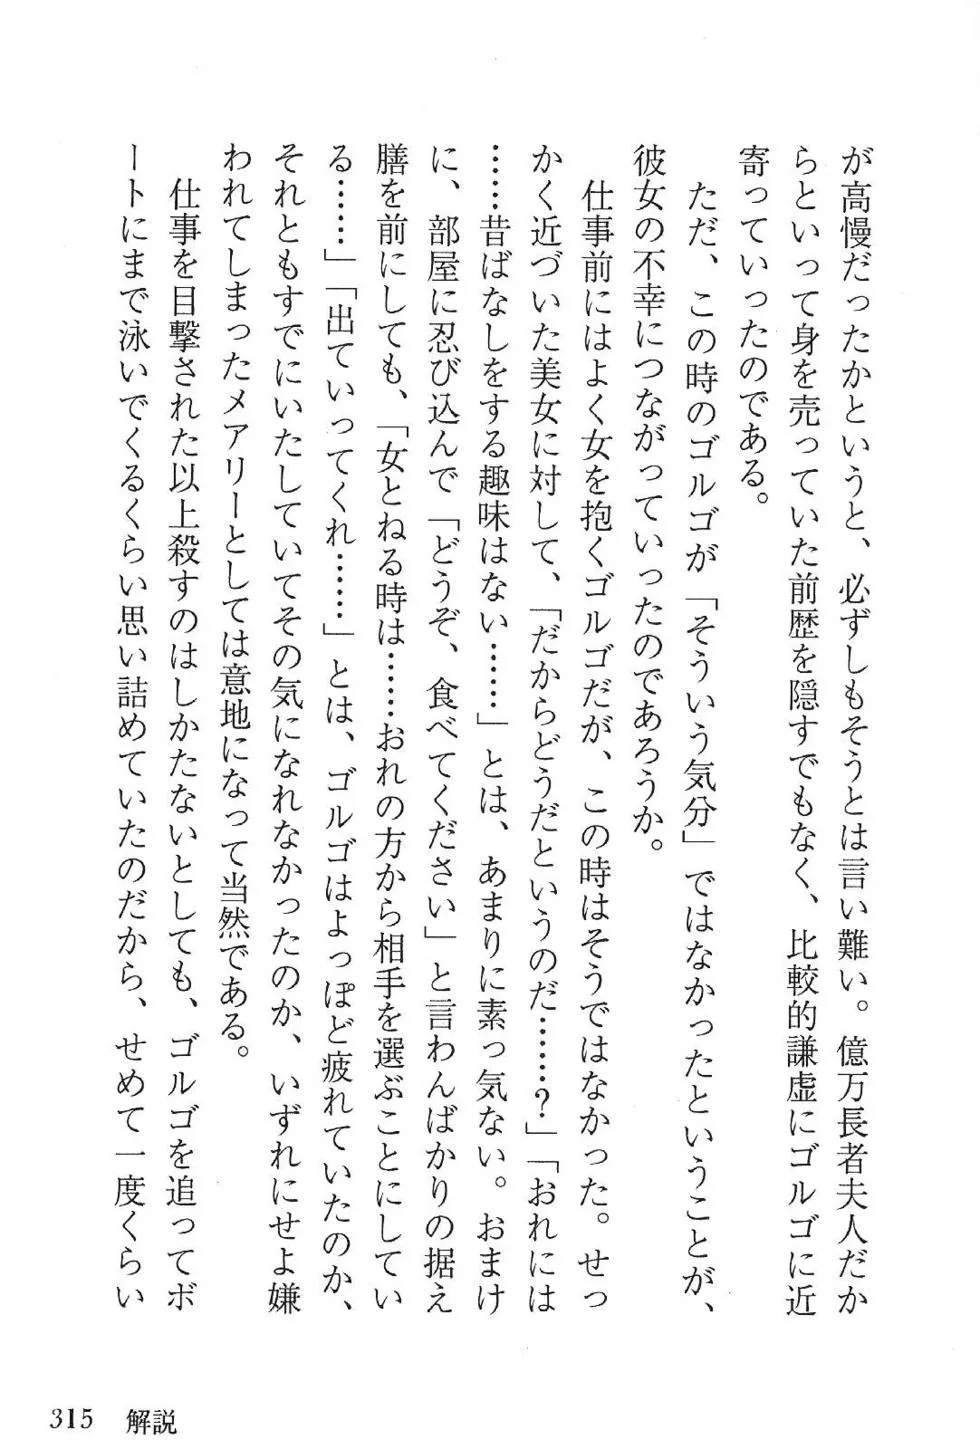 が高慢だったかというと、必ずしもそうとは言い難い。億万長者夫人だか
らといって身を売っていた前歴を隠すでもなく、比較的謙虚にゴルゴに近
寄っていったのである。
ただ、この時のゴルゴが「そういう気分」ではなかったということが、
彼女の不幸につながっていったのであろうか。
仕事前にはよく女を抱くゴルゴだが、この時はそうではなかった。せっ
かく近づいた美女に対して、「だからどうだというのだ……？」「おれには
……昔ばなしをする趣味はない……」とは、あまりに素っ気ない。おまけ
に、部屋に忍び込んで「どうぞ、食べてください」と言わんばかりの据え
膳を前にしても、「女とねる時は……おれの方から相手を選ぶことにしてい
る……」「出ていってくれ……」とは、ゴルゴはよっぽど疲れていたのか、
それともすでにいたしていてその気になれなかったのか、いずれにせよ嫌
われてしまったメアリーとしては意地になって当然である。
仕事を目撃された以上殺すのはしかたないとしても、ゴルゴを追ってボ
ートにまで泳いでくるくらい思い詰めていたのだから、せめて一度くらい
315 解説